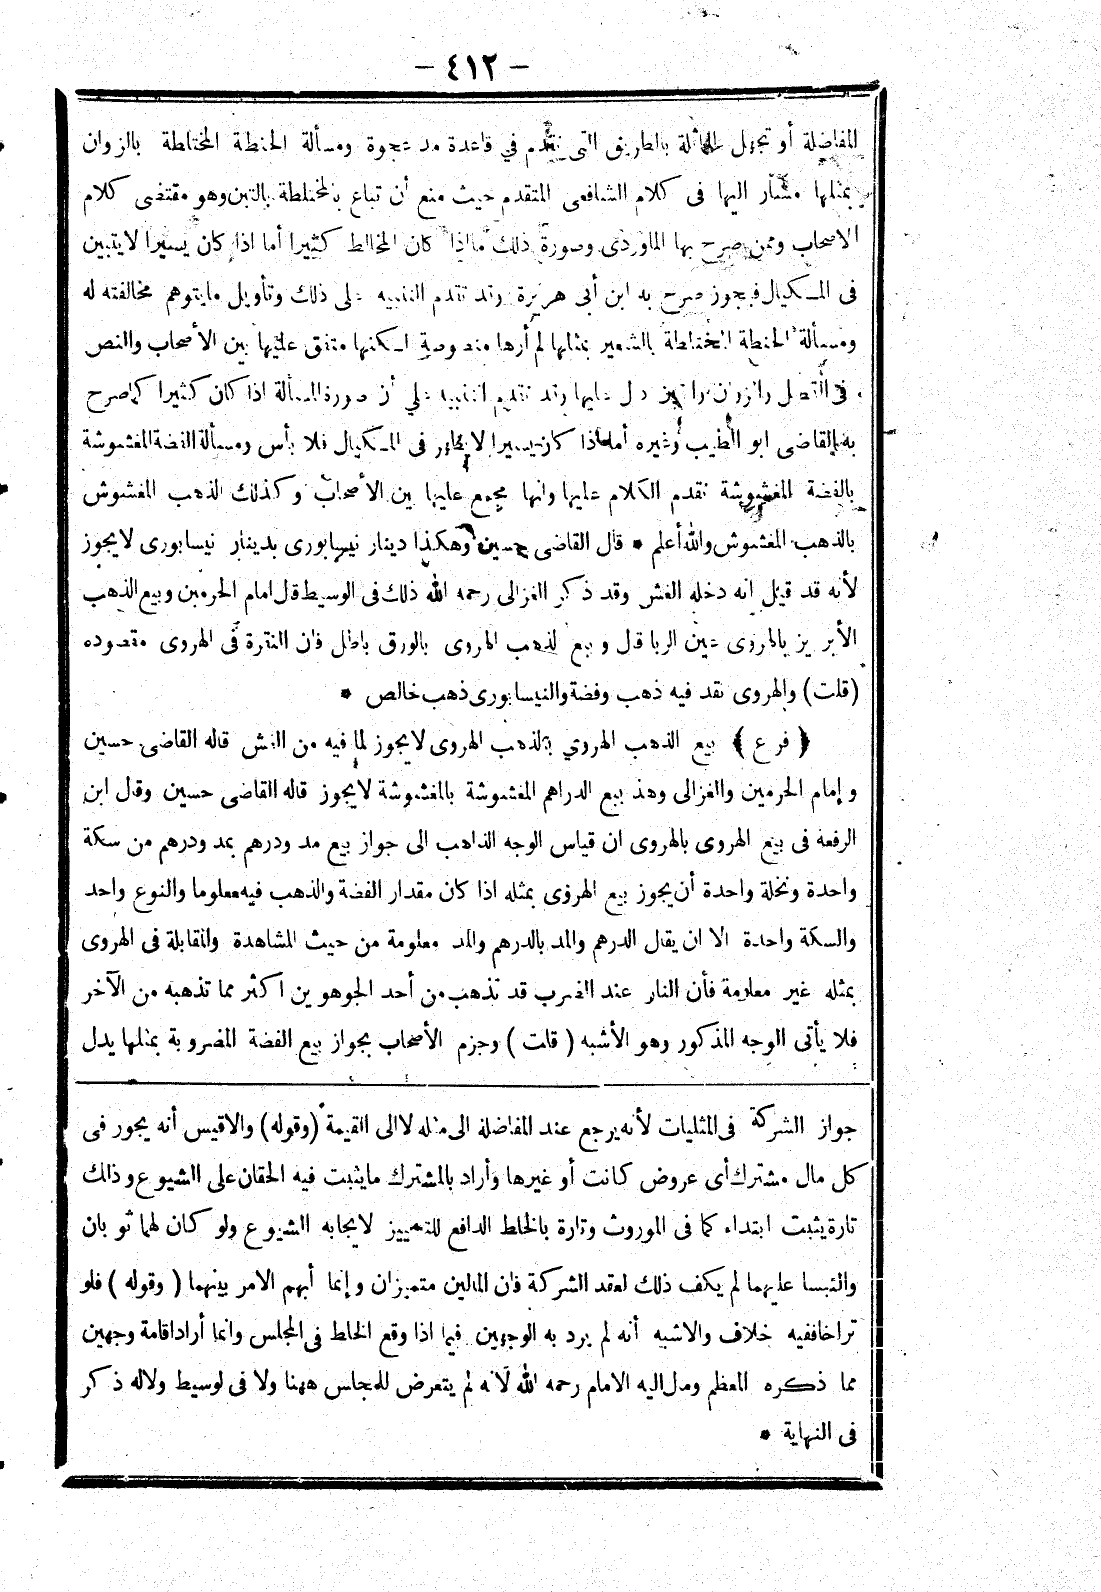 - ٤١٢ -
المفاضلة أو تجهل المماثلة بالطريق التى تقدم في قاعدة مد عجوة ومسألة الحنطة المختلطة بالزوان
بمثلها مشار اليها فى كلام الشافعى المتقدم حيث منع أن تباع بالمختلطة بالتبن وهو مقتضى كلام
الاصحاب وممن صرح بها الماوردى وصورة ذلك ما اذا كان المخالط كثيرا أما اذا كان يسيرا لا يتبين
فى المكيال فيجوز صرح به ابن أبى هريرة وقد تقدم التنبيه على ذلك وتأويل ما يتوهم مخالفته له
ومسألة الحنطة المختلطة بالشعير بمثلها لم أرها منصوصة لكنها متفق عليها بين الأصحاب والنص
فى القصل والزوان والتبن دال عليها وقد تقدم التنبيه على أن صورة المسألة اذا كان كثيرا كما صرح
به القاضى ابو الطيب وغيره أما اذا كان يسيرا لا يظهر فى المكيال فلا بأس ومسألة الفضة المغشوشة
بالفضة المغشوشة تقدم الكلام عليها وانها مجمع عليها بين الأصحاب وكذلك الذهب المغشوش
بالذهب المغشوش والله أعلم * قال القاضى حسين وهكذا دينار نيسابورى بدينار نيسابورى لا يجوز
لأنه قد قيل انه دخله الغش وقد ذكر الغزالى رحمه الله ذلك فى الوسيط قال امام الحرمين وبيع الذهب
الأبريز بالهروى عين الربا قال وبيع الذهب الهروى بالورق باطل فان النقرة فى الهروى مقصوده
(قلت) والهروى نقد فيه ذهب وفضة والنيسابورى ذهب خالص *
﴿ فرع ﴾ بيع الذهب الهروي بالذهب الهروى لا يجوز لما فيه من الغش قاله القاضى حسين
وإمام الحرمين والغزالى وهذ بيع الدراهم المغشوشة بالمغشوشة لا يجوز قاله القاضى حسين وقال ابن
الرفعة فى بيع الهروى بالهروى ان قياس الوجه الذاهب الى جواز بيع مد ودرهم بمد ودرهم من سكة
واحدة ونخلة واحدة أن يجوز بيع الهروى بمثله اذا كان مقدار الفضة والذهب فيه معلوما والنوع واحد
والسكة واحدة الا ان يقال الدرهم والمد بالدرهم والمد معلومة من حيث المشاهدة والمقابلة فى الهروى
بمثله غير معلومة فأن النار عند الضرب قد تذهب من أحد الجوهرين اكثر مما تذهبه من الآخر
فلا يأتى الوجه المذكور وهو الأشبه ( قلت ) وجزم الأصحاب بجواز بيع الفضة المضروبة بمثلها يدل
جواز الشركة فى المثليات لأنه يرجع عند المفاضلة الى مثله لا الى القيمة (وقوله) والاقيس أنه يجوز فى
كل مال مشترك أى عروض كانت أو غيرها وأراد بالمشترك ما يثبت فيه الحقان على الشيوع وذلك
تارة يثبت ابتداء كما فى الموروث وتارة بالخلط الدافع للتمييز لايجابه الشيوع ولو كان لهما ثوبان
والتبسا عليهما لم يكف ذلك لعقد الشركة فان المالين متميزان وإنما أبهم الامر بينهما ( وقوله ) فلو
تراخا ففيه خلاف والاشبه أنه لم يرد به الوجهين فيما اذا وقع الخلط فى المجلس وانما أراد اقامة وجهين
مما ذكره المعظم ومال اليه الامام رحمه الله لانه لم يتعرض للمجلس ههنا ولا فى لوسيط ولاله ذكر
فى النهاية *